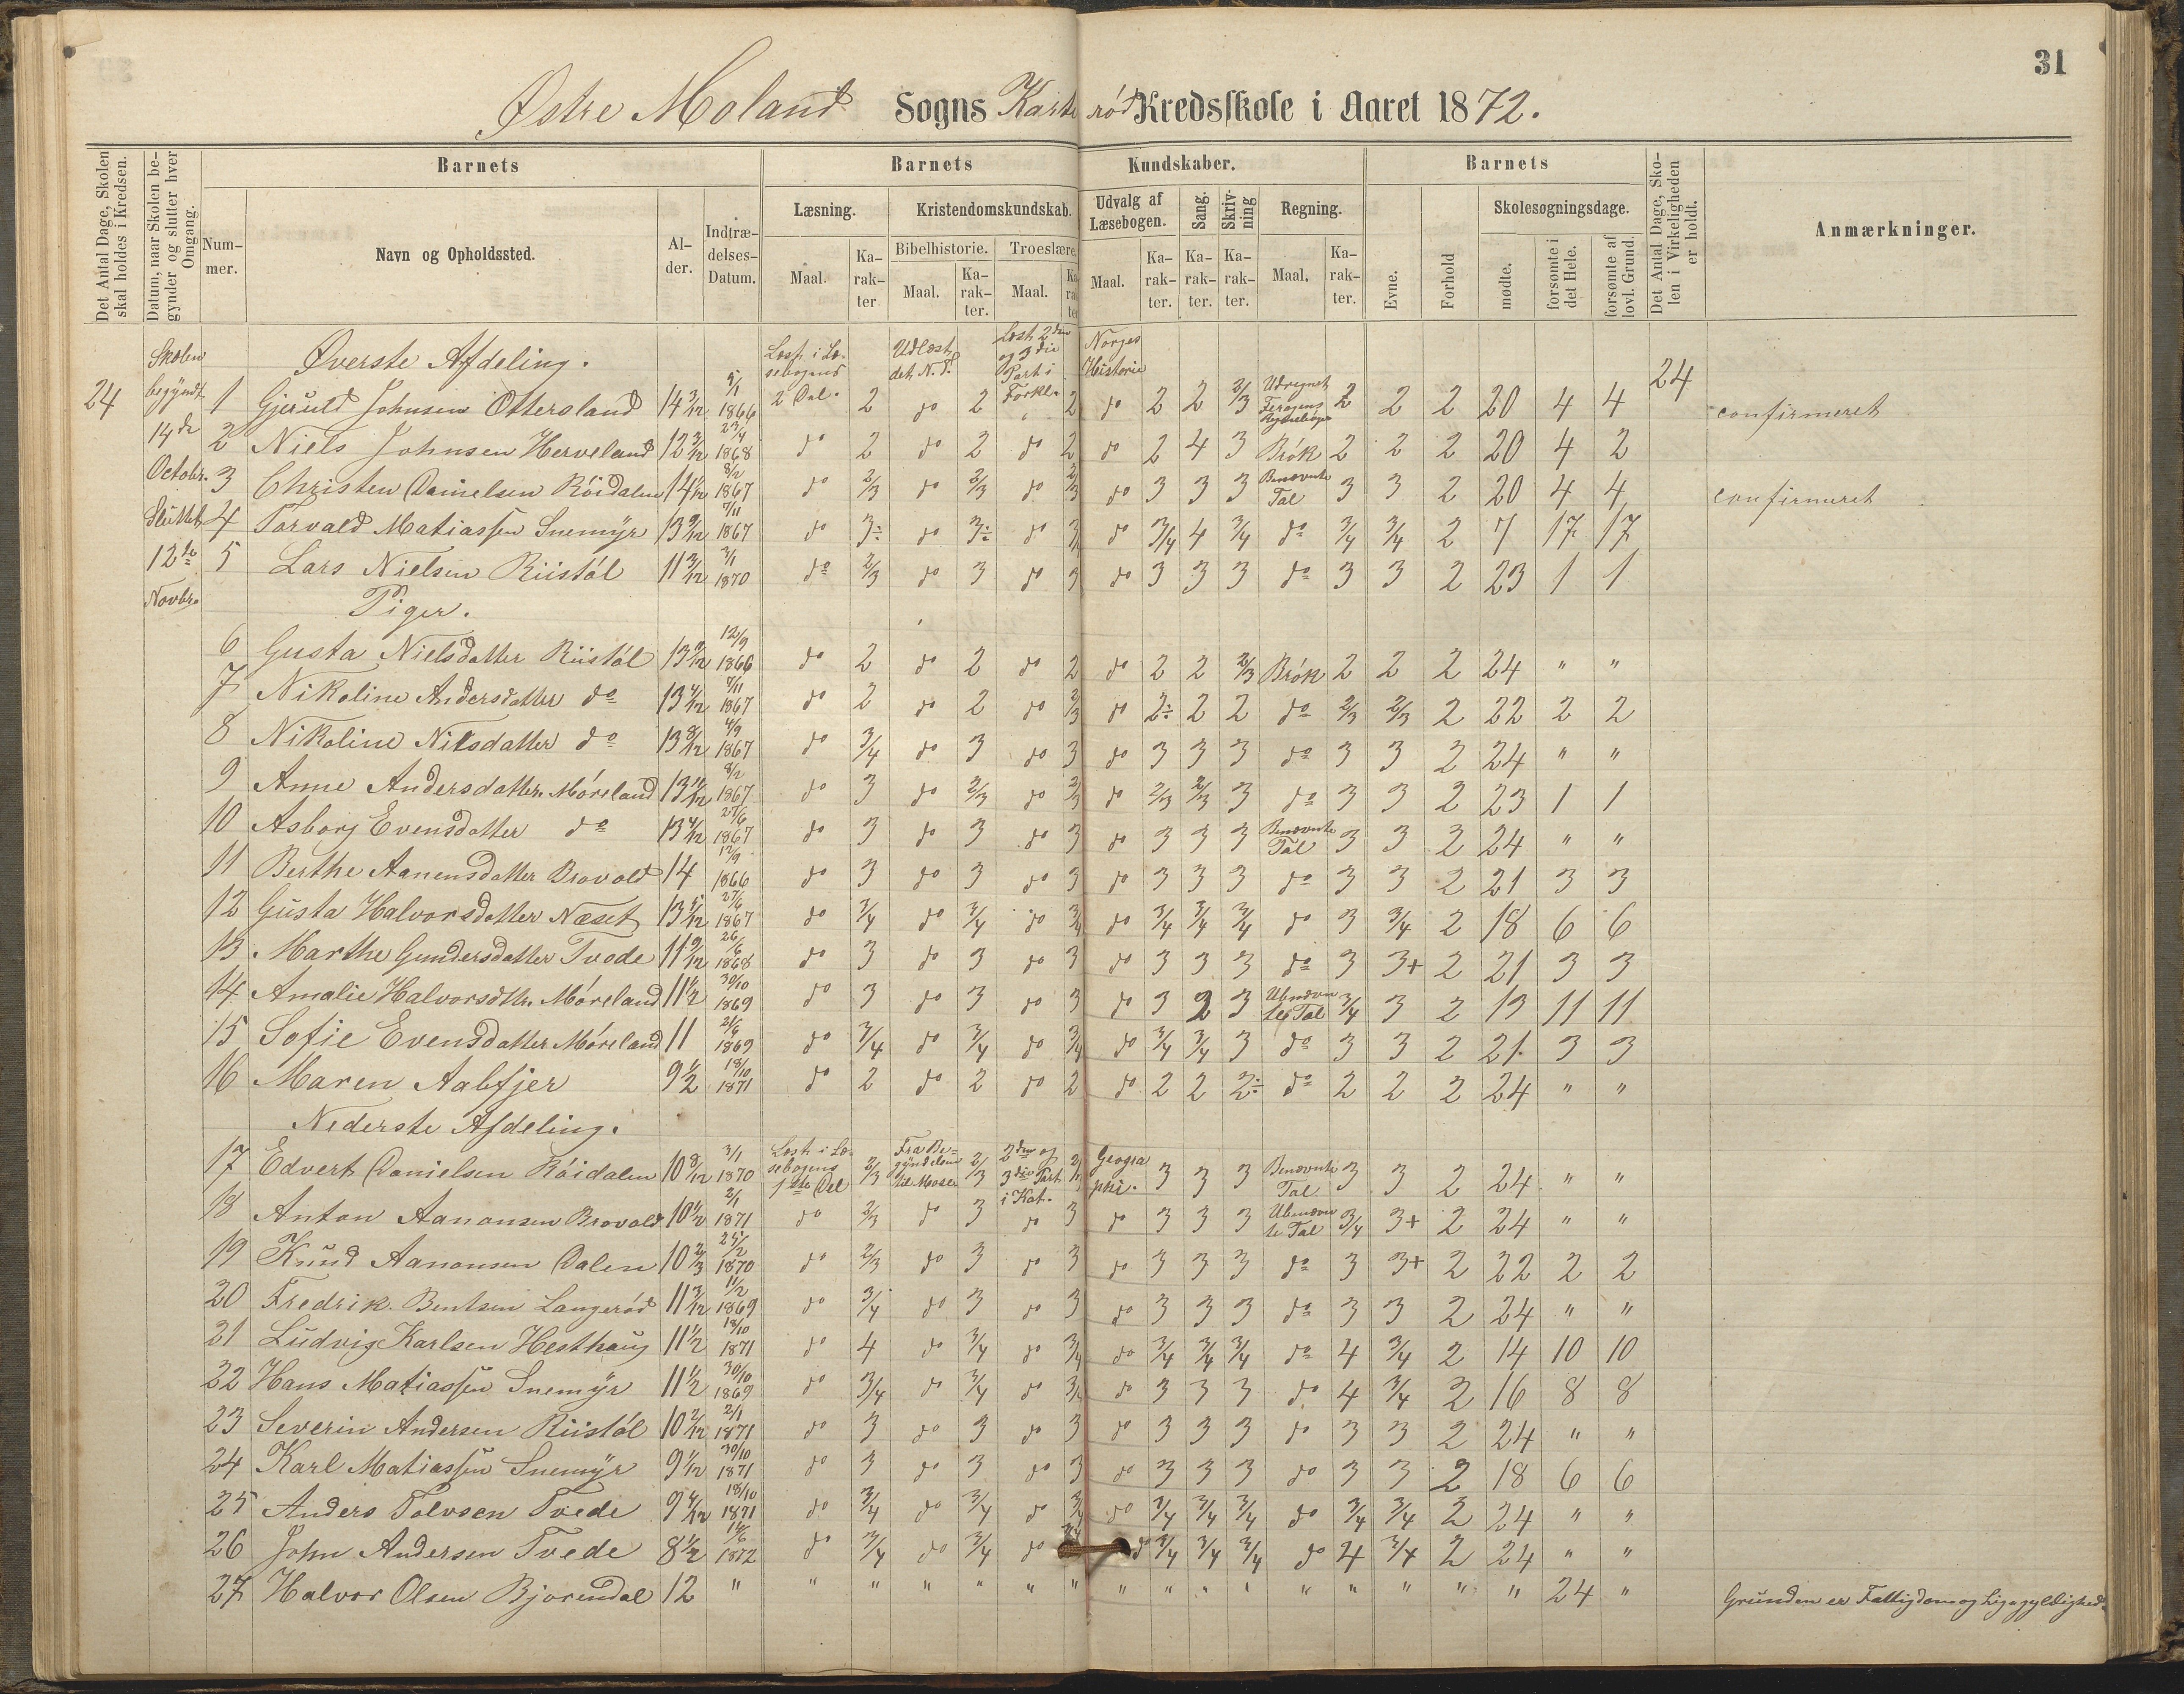 31
Østre Moland Sogns Karterød Kredsskole i Aaret 1872.
Det Antal Dage, Skolen skal holdes i Kredsen.
Datum, naar Skolen begynder og slutter hver Omgang.
Barnets
Nummer.
Navn og Opholdssted.
Alder.
Indtrædelses-Datum.
Barnets Kundskaber.
Læsning. Maal. Karakter.
Kristendomskundskab.
Bibelhistorie. Maal. Karakter.
Troeslære. Maal. Karakter.
Udvalg af Læsebogen. Maal. Karakter.
Sang. Karakter.
Skrivning Karakter.
Regning. Maal. Karakter.
Barnets
Evne.
Forhold
Skolesøgningsdage.
mødte.
forsømte i det Hele.
forsømte af lovl. Grund.
Det Antal Dage, Skolen i Virkeligheden er holdt.
Anmærkninger.
24
Skolen begyndt 14de Octobr. Sluttet 12te Novbr.
Øverste Afdeling.
Læst i Læsebogens 2 Del. Udlæst det N. T. Læst 2den og 3die Part i Forkl. Norges Historie
24
1 Gjeruld Johnsen Ottersland 14 3/12 5/1 1866 2 do 2 2 do 2 2 2/3 Udregnet 2 2 2 20 4 4 confirmeret
2 Niels Johnsen Herveland 12 3/12 23/4 1868 do 2 do 2 do 2 do 2 4 3 Brók 2 2 2 20 4 2
3 Christen Danielsen Róidalen 14 1/12 8/2 1867 do 2/3 do 2/3 do 2/3 do 3 3 3 Benævnte Tal 3 3 2 20 4 4 confirmeret
4 Torvald Matiassen Snemÿr 13 9/12 7/11 1867 do 3÷ do 3÷ do 3/4 do 3/4 4 3/4 do 3/4 3/4 2 7 17 17
5 Lars Nielsen Riistól 11 3/12 3/1 1870 do 2/3 do 3 do 3 do 3 3 3 do 3 3 2 23 1 1
Piger.
6 Gusta Nielsdatter Riistól 13 9/12 12/9 1866 do 2 do 2 do 2 do 2 2 2/3 Brók 2 2 2 24 " "
7 Nikoline Andersdatter do 13 4/12 7/11 1867 do 2 do 2 do 2/3 do 2÷ 2 2 do 2/3 2/3 2 22 2 2
8 Nikoline Nilsdatter do 13 8/12 4/9 1867 do 3/4 do 3 do 3 do 3 3 3 do 3 3 2 24 " "
9 Anne Andersdatter Móreland 13 11/12 8/2 1867 do 3 do 2/3 do 2/3 do 2/3 2/3 3 do 3 3 2 23 1 1
10 Asborg Evensdatter do 13 4/12 27/6 1867 do 3 do 3 do 3 do 3 3 3 Benævnte Tal 3 3 2 24 " "
11 Berthe Aanensdatter Brovold 14 12/9 1866 do 3 do 3 do 3 do 3 3 3 do 3 3 2 21 3 3
12 Gusta Halvorsdatter Næset 13 5/12 27/6 1867 do 3/4 do 3/4 do 3/4 do 3/4 3/4 3/4 do 3 3/4 2 18 6 6
13 Marthe Gundersdatter Tvede 11 9/12 26/6 1868 do 3 do 3 do 3 do 3 3 3 do 3 3+ 2 21 3 3
14 Amalie Halvorsdtr. Móreland 11 1/2 30/10 1869 do 3 do 3 do 3 do 3 2 3 Ubenævnte Tal 3/4 3 2 13 11 11
15 Sofie Evensdatter Móreland 11 21/6 1869 do 3/4 do 3/4 do 3/4 do 3/4 3/4 3 do 3 3 2 21 3 3
16 Maren Aabfjer 9 1/2 18/10 1871 do 2 do 2 do 2 do 2 2 2÷ do 2 2 2 24 " "
Nederste Afdeling.
17 Edvert Danielsen Róidalen 10 8/12 3/1 1870 Læst i Læsebogens 1ste Del 2/3 Fra Begyndelsen til Mose 2/3 2den og 3die Part i Kat. 2/3 Geographi. 3 3 3 Benævnte Tal 3 3 2 24 " "
18 Anton Aanonsen Brovold 10 1/2 2/1 1871 do 2/3 do 3 do 3 do 3 3 3 Ubenævnte Tal 3/4 3+ 2 24 " "
19 Knud Aanonsen Dalen 10 2/3 25/2 1870 do 2/3 do 3 do 3 do 3 3 3 do 3 3+ 2 22 2 2
20 Fredrik Bentsen Langeród 11 3/12 11/2 1869 do 3/4 do 3 do 3 do 3 3 3 do 3 3 2 24 " "
21 Ludvig Karlsen Hesthaug 11 1/2 18/10 1871 do 4 do 3/4 do 3/4 do 3/4 3/4 3/4 do 4 3/4 2 14 10 10
22 Hans Matiassen Snemÿr 11 1/2 30/10 1869 do 3/4 do 3/4 do 3/4 do 3 3 3 do 4 3/4 2 16 8 8
23 Severin Andersen Riistól 10 2/12 2/1 1871 do 3 do 3 do 3 do 3 3 3 do 3 3 2 24 " "
24 Karl Matiassen Snemÿr 9 1/12 30/10 1871 do 3 do 3 do 3 do 3 3 3 do 3 3 2 18 6 6
25 Anders Tolvsen Tvede 9 4/12 18/10 1871 do 3/4 do 3/4 do 3/4 do 3/4 3/4 3/4 do 3/4 3/4 2 24 " "
26 John Andersen Tvede 8 1/2 1872 do 3/4 do 3/4 do 3/4 do 3/4 3/4 3/4 do 4 3/4 2 24 " "
27 Halvor Olsen Bjorendal 12 " " " " " " " " " " " " " " " " 24 " Grunden er Fattigdom og Ligegyldighed.